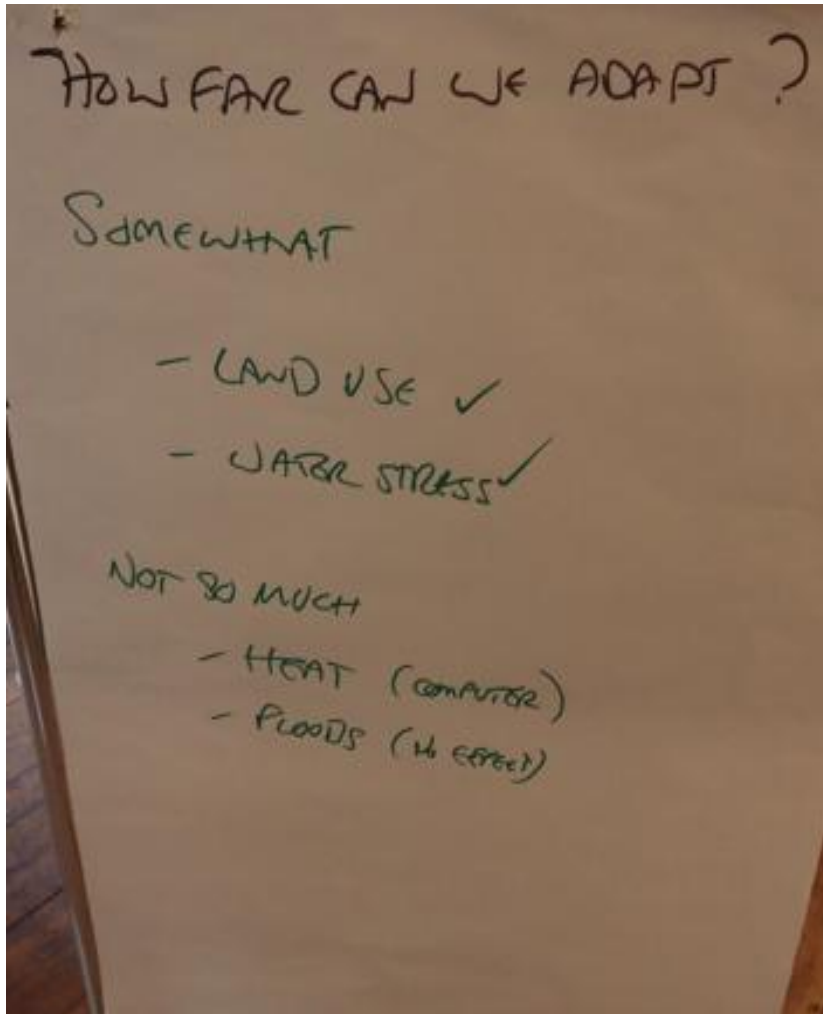 HOW FAR CAN WE ADAPT ?
SOMEWHAT
- LAND USE ✓
- WATER STRESS ✓
NOT SO MUCH
- HEAT (COMPUTER)
- FLOODS (No EFFECT)